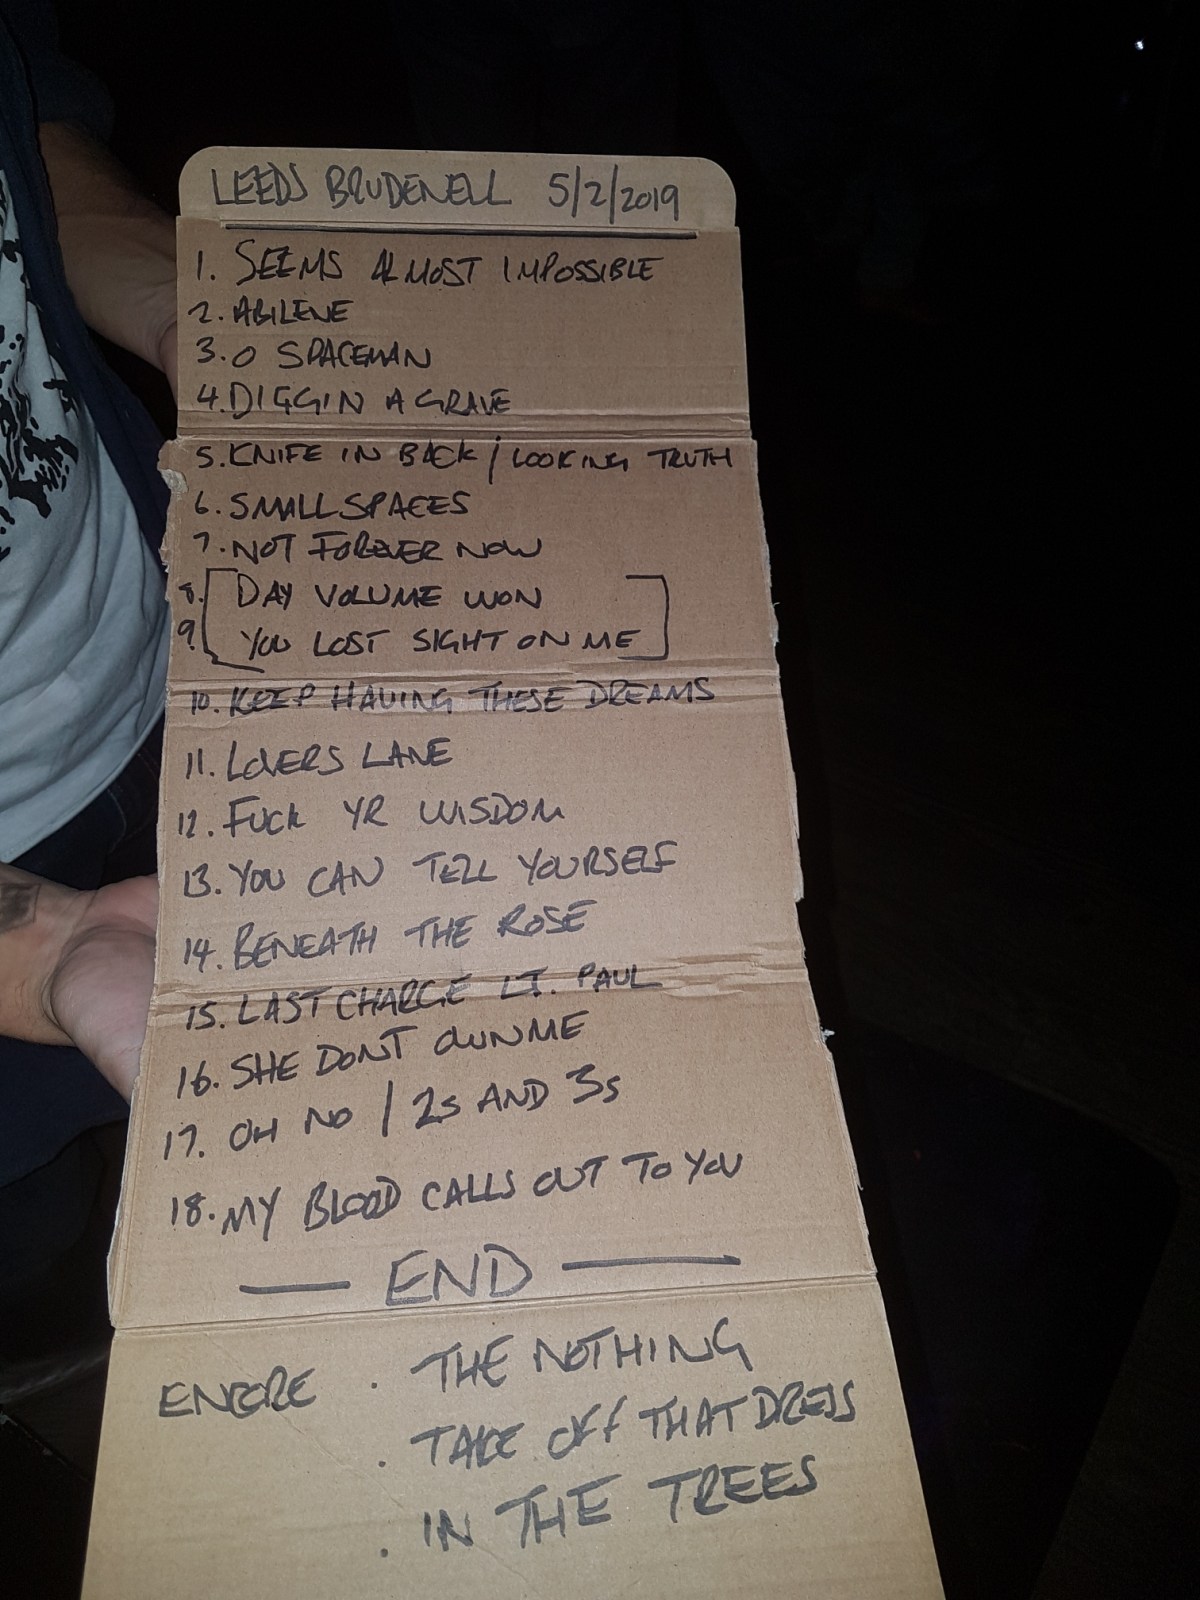 LEEDS BRUDENELL 5/2/2019
1. SEEMS ALMOST IMPOSSIBLE
2. ABILENE
3. O SPACEMAN
4. DIGGIN A GRAVE
5. KNIFE IN BACK / LOOKING TRUTH
6. SMALL SPACES
7. NOT FOREVER NOW
8. DAY VOLUME WON
9. YOU LOST SIGHT ON ME
10. KEEP HAVING THESE DREAMS
11. LOVERS LANE
12. FUCK YR WISDOM
13. YOU CAN TELL YOURSELF
14. BENEATH THE ROSE
15. LAST CHARGE LT. PAUL
16. SHE DONT OWN ME
17. OH NO / 2s AND 3s
18. MY BLOOD CALLS OUT TO YOU
— END —
ENCORE . THE NOTHING
. TAKE OFF THAT DRESS
. IN THE TREES